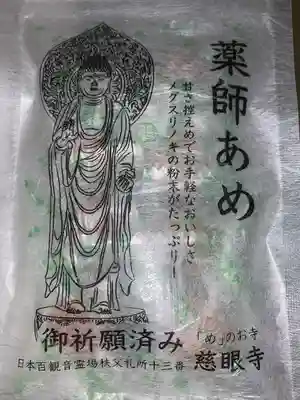 薬師あめ
甘さ控えめでお手軽なおいしさ
メグスリノキの粉末がたっぷりー
御祈願済み
「め」のお寺
慈眼寺
日本百観音霊場秩父札所十三番